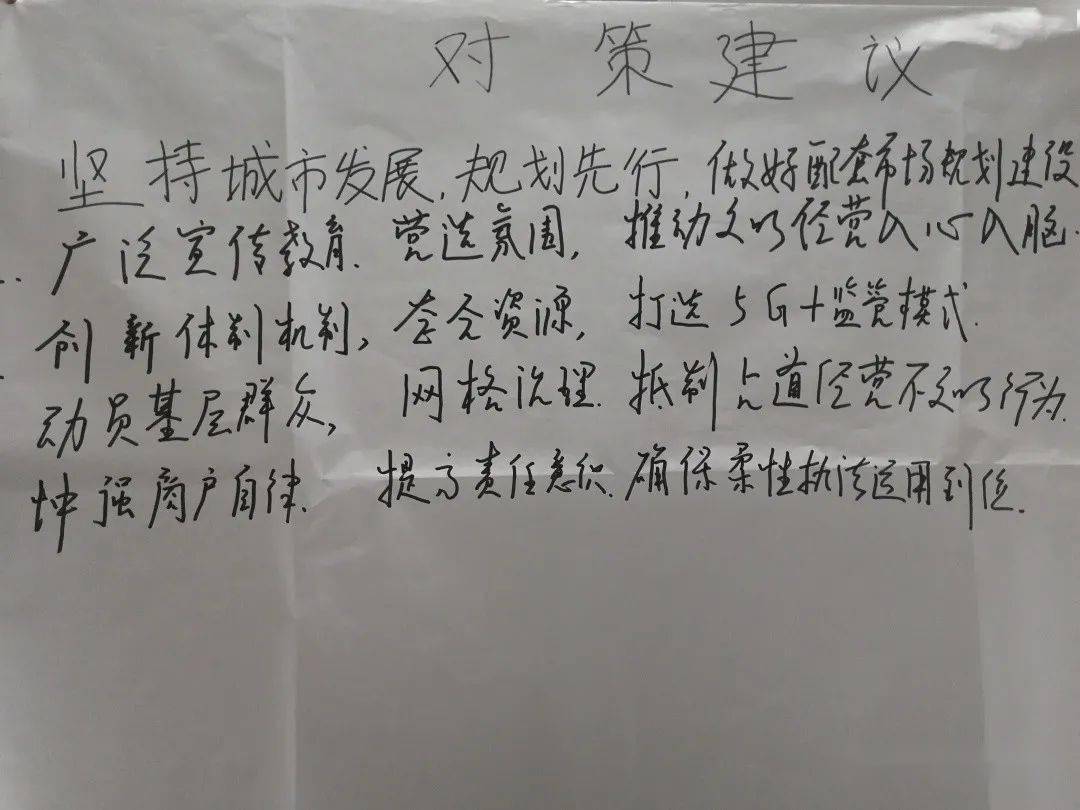 对策建议
坚持城市发展,规划先行,做好配套市场规划建设
广泛宣传教育.营造氛围,推动文明经营入心入脑.
创新体制机制,资源,打造5G+监管模式.
动员基层群众,网格治理.抵制占道经营不文明行为.
强商户自律.提高责任意识.确保柔性执法运用到位.